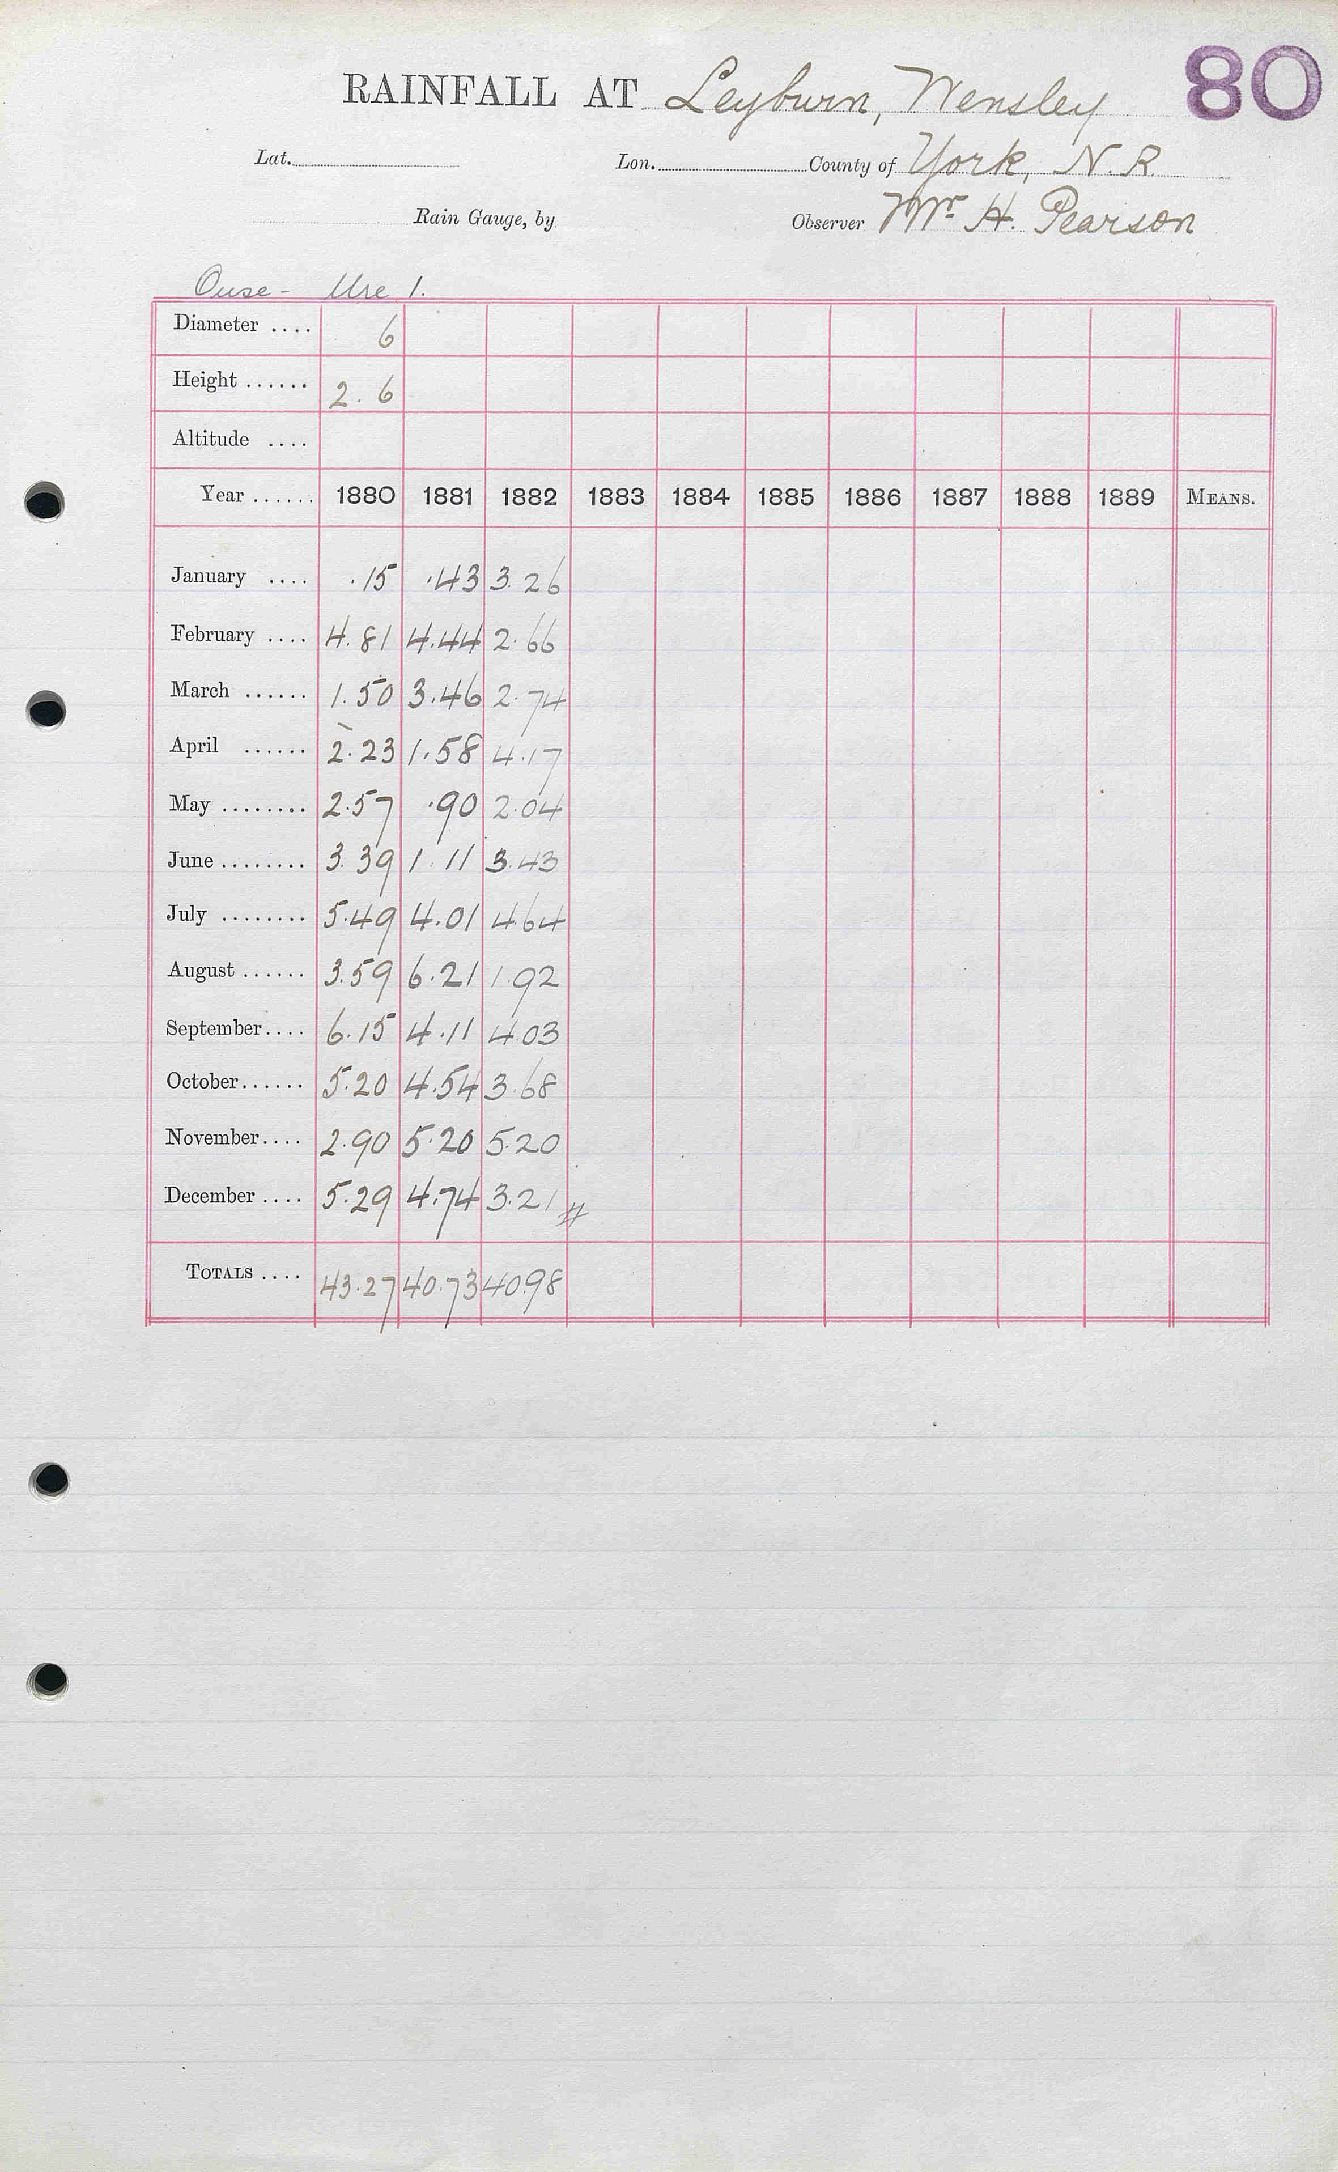 80
RAINFALL AT Leyburn, Wensley
Lat. Lon. County of York, N.R.
Rain Gauge, by Observer Mr. H. Pearson
Ouse - Ure 1.
Diameter .... 6
Height ...... 2. 6
Altitude ....
Year ...... 1880 1881 1882 1883 1884 1885 1886 1887 1888 1889 MEANS.
January .... .15 .43 3.26
February .... 4.81 4.44 2.66
March ...... 1.50 3.46 2.74
April ...... 2.23 1.58 4.17
May ........ 2.57 .90 2.04
June ........ 3.39 1.11 3.43
July ........ 5.49 4.01 4.64
August ...... 3.59 6.21 1.92
September.... 6.15 4.11 4.03
October...... 5.20 4.54 3.68
November.... 2.90 5.20 5.20
December .... 5.29 4.74 3.21 #
TOTALS .... 43.27 40.73 40.98